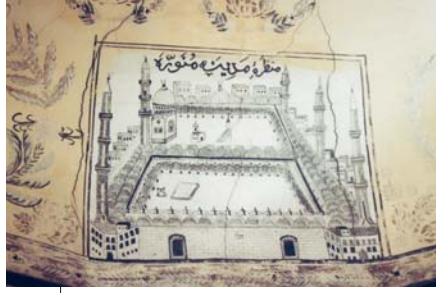 منظرهٔ مدینهٔ منوّره